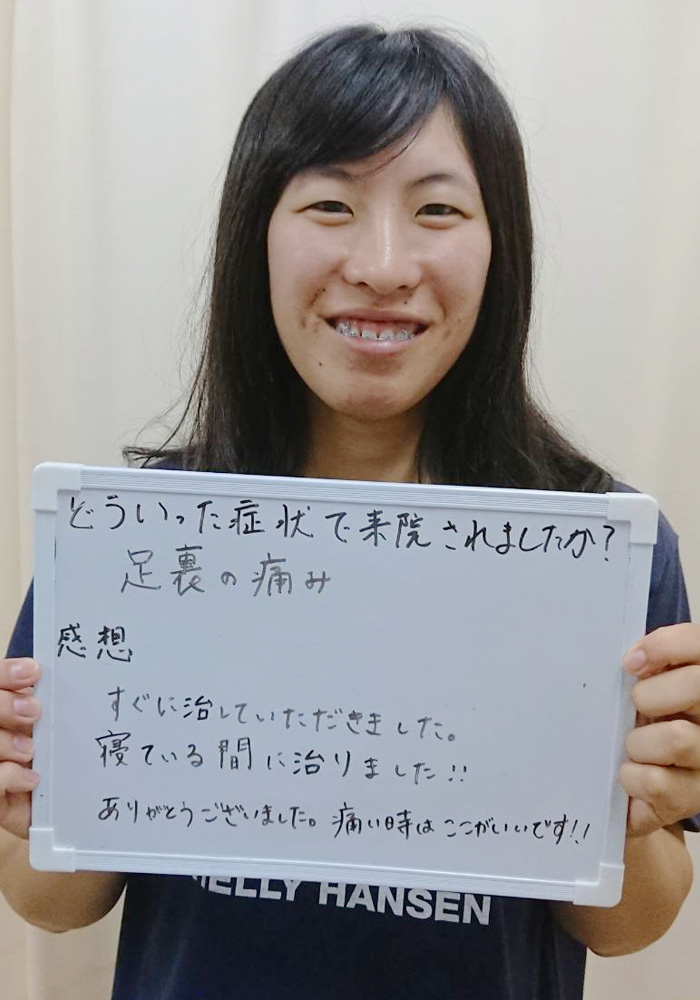 どういった症状で来院されましたか?
足裏の痛み
感想
すぐに治していただきました。
寝ている間に治りました!!
ありがとうございました。痛い時はここがいいです!!
HELLY HANSEN